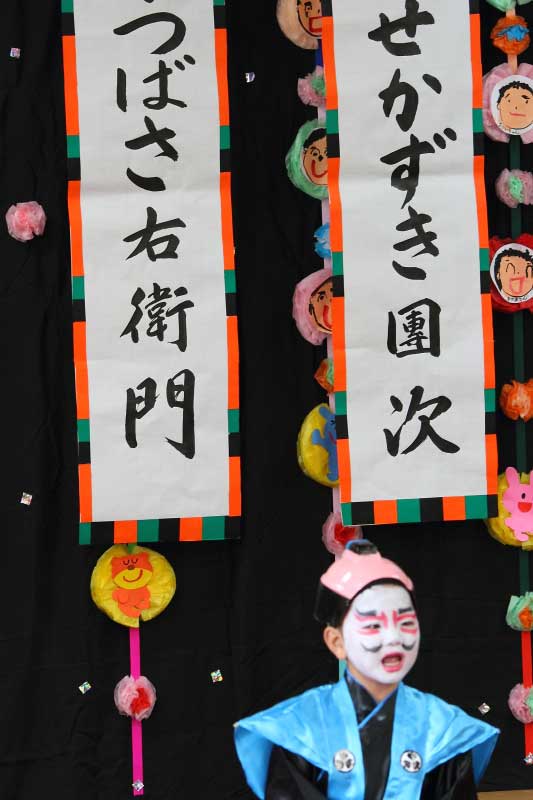 せかずき團次
つばさ右衛門